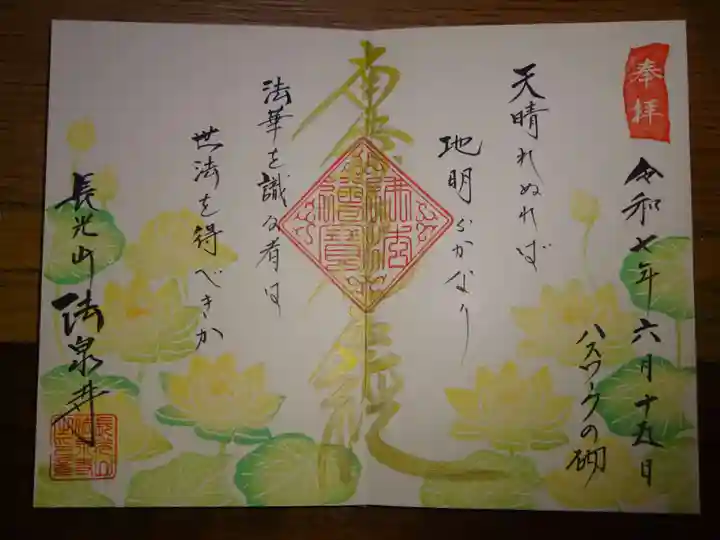 奉拝
令和七年六月十五日
ハスワークの砌
天晴れぬれば
地明らかなり
南無妙法蓮華経
法華を識る者は
世法を得べきか
長光山 法泉寺